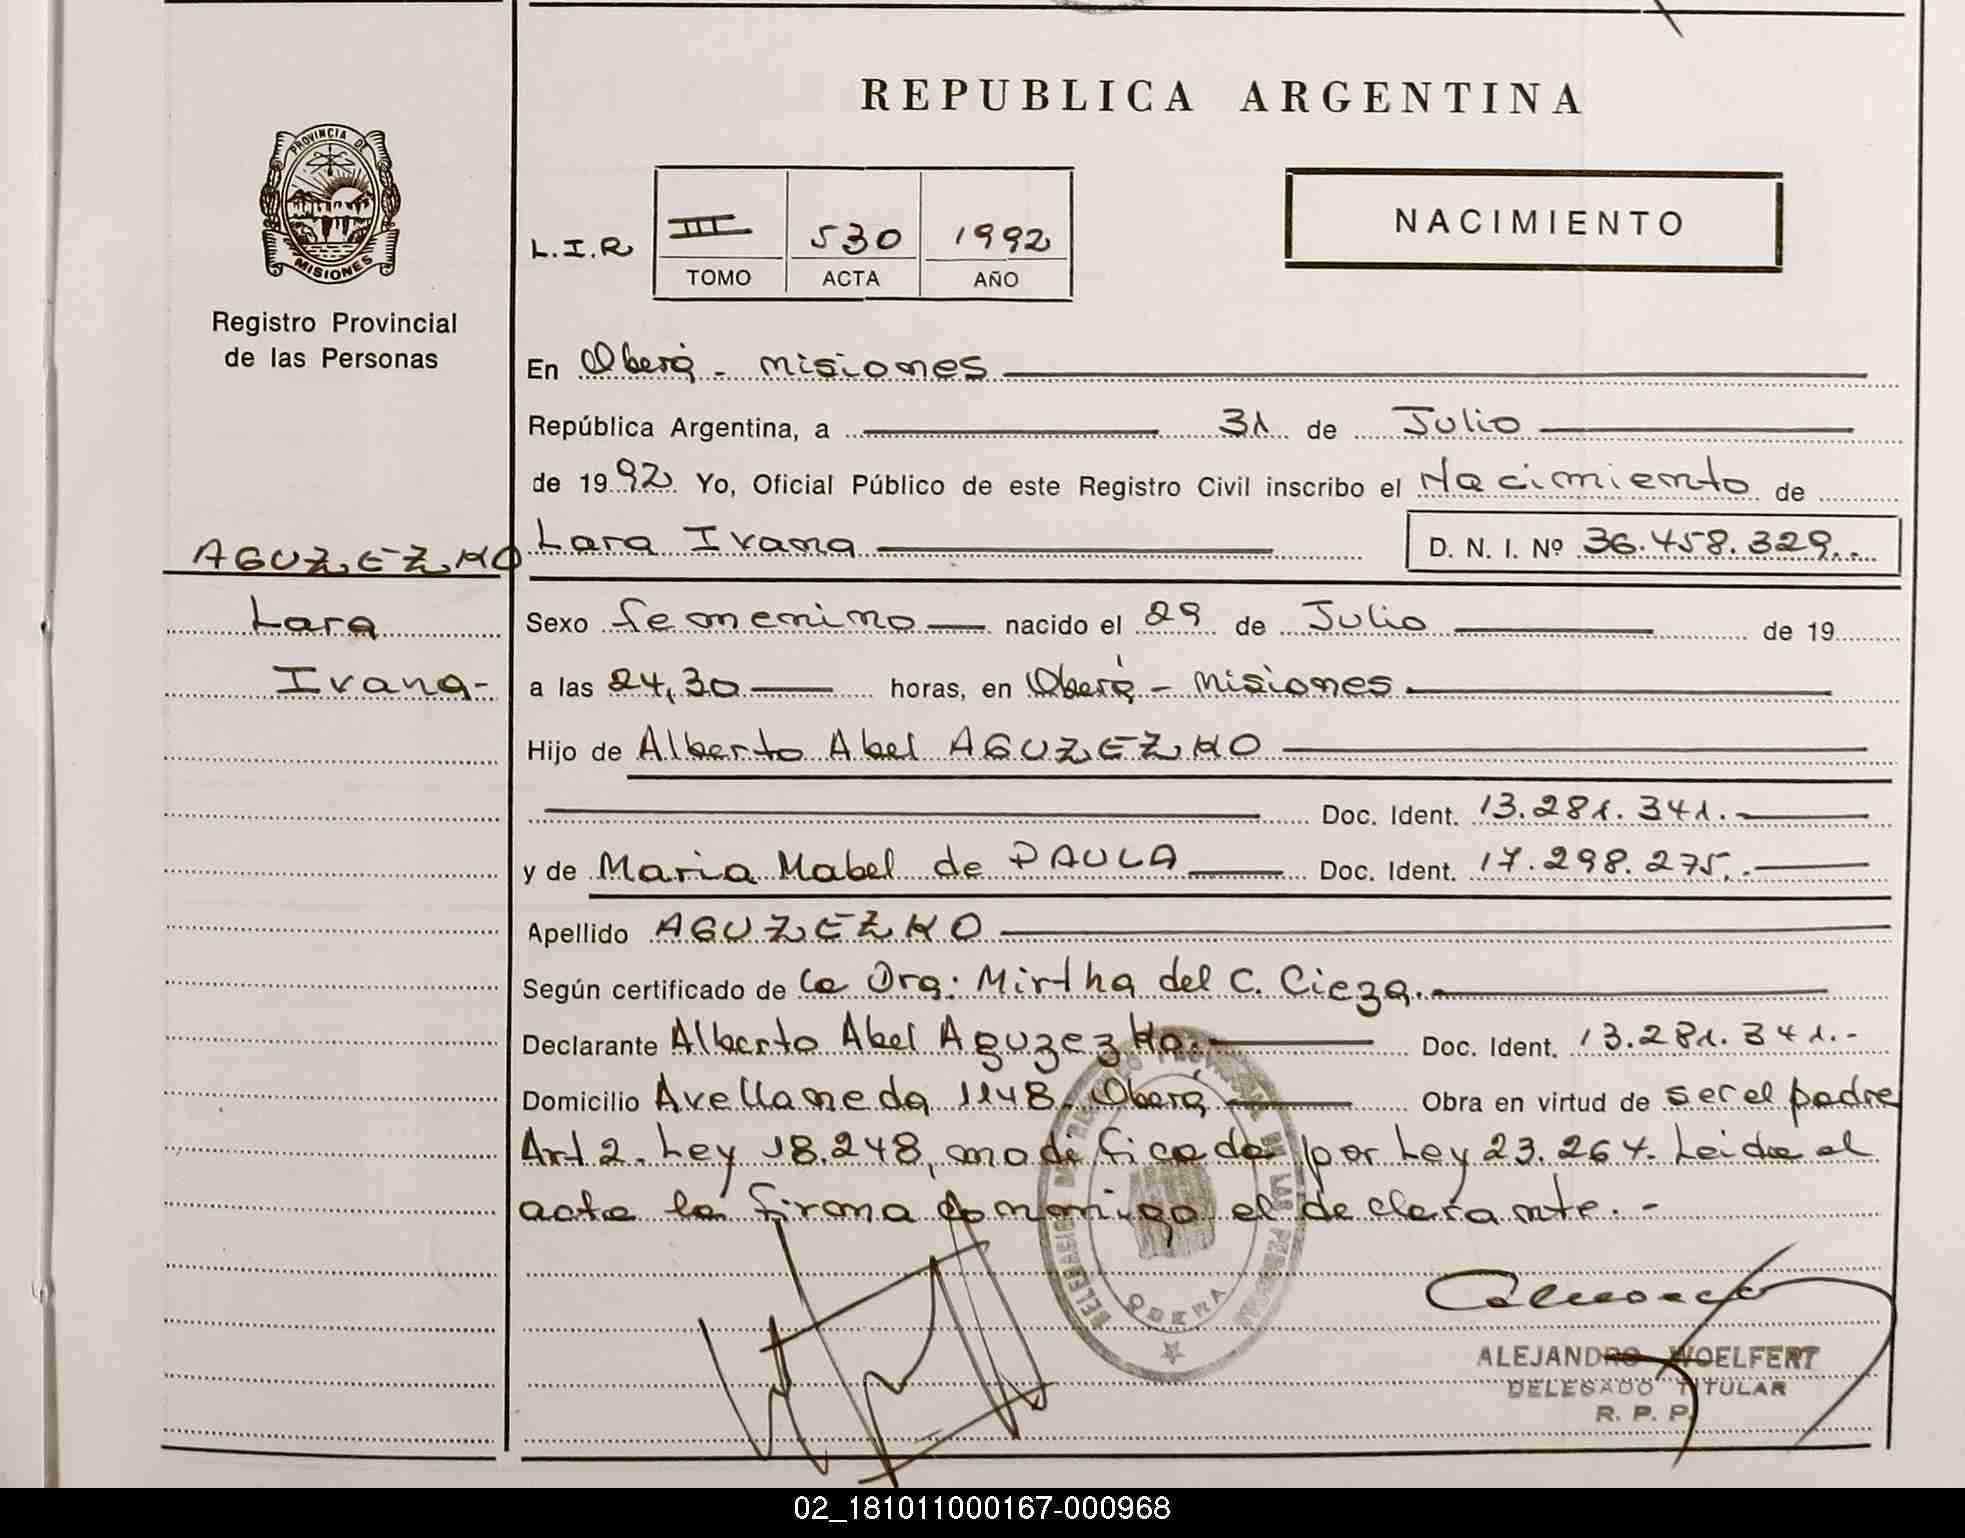 REPUBLICA ARGENTINA
PROVINCIA DE
MISIONES
Registro Provincial
de las Personas
NACIMIENTO
L.I.R III 530 1992
TOMO ACTA AÑO
En Oberá - misiones
República Argentina, a 31 de Julio
de 1992 Yo, Oficial Público de este Registro Civil inscribo el Nacimiento de
AGUZEZKO
Lara
Ivana-
Lara Ivana D. N. I. Nº 36.458.329..
Sexo femenino nacido el 29 de Julio de 19
a las 24,30 horas, en Oberá - misiones
Hijo de Alberto Abel AGUZEZKO
Doc. Ident. 13.281.341.
y de Maria Mabel de PAULA Doc. Ident. 17.298.275.
Apellido AGUZEZKO
Según certificado de la Dra: Mirtha del C. Cieza.
Declarante Alberto Abel Aguzezko. Doc. Ident. 13.281.341.-
Domicilio Avellaneda 1148. Oberá Obra en virtud de ser el padre
Art 2. Ley 18.248, modificada por Ley 23.264. Leida el
acta la firma conmigo el declarante.-
OBERA
ALEJANDRO WOELFERT
DELEGADO TITULAR
R. P. P.
02_181011000167-000968